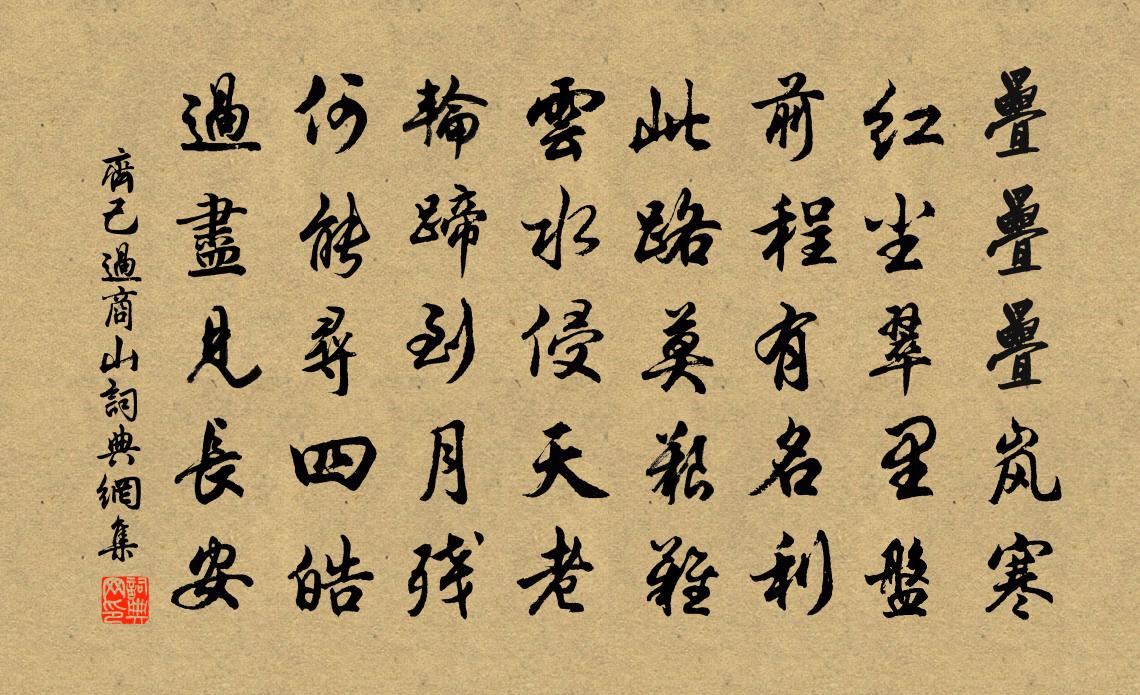 疊疊疊岚寒
红尘翠里盤
前程有名利
此路莫艱難
雲水侵天老
輪蹄到月残
何能尋四皓
過盡見長安
齊己過商山詞典網集
詞典網印